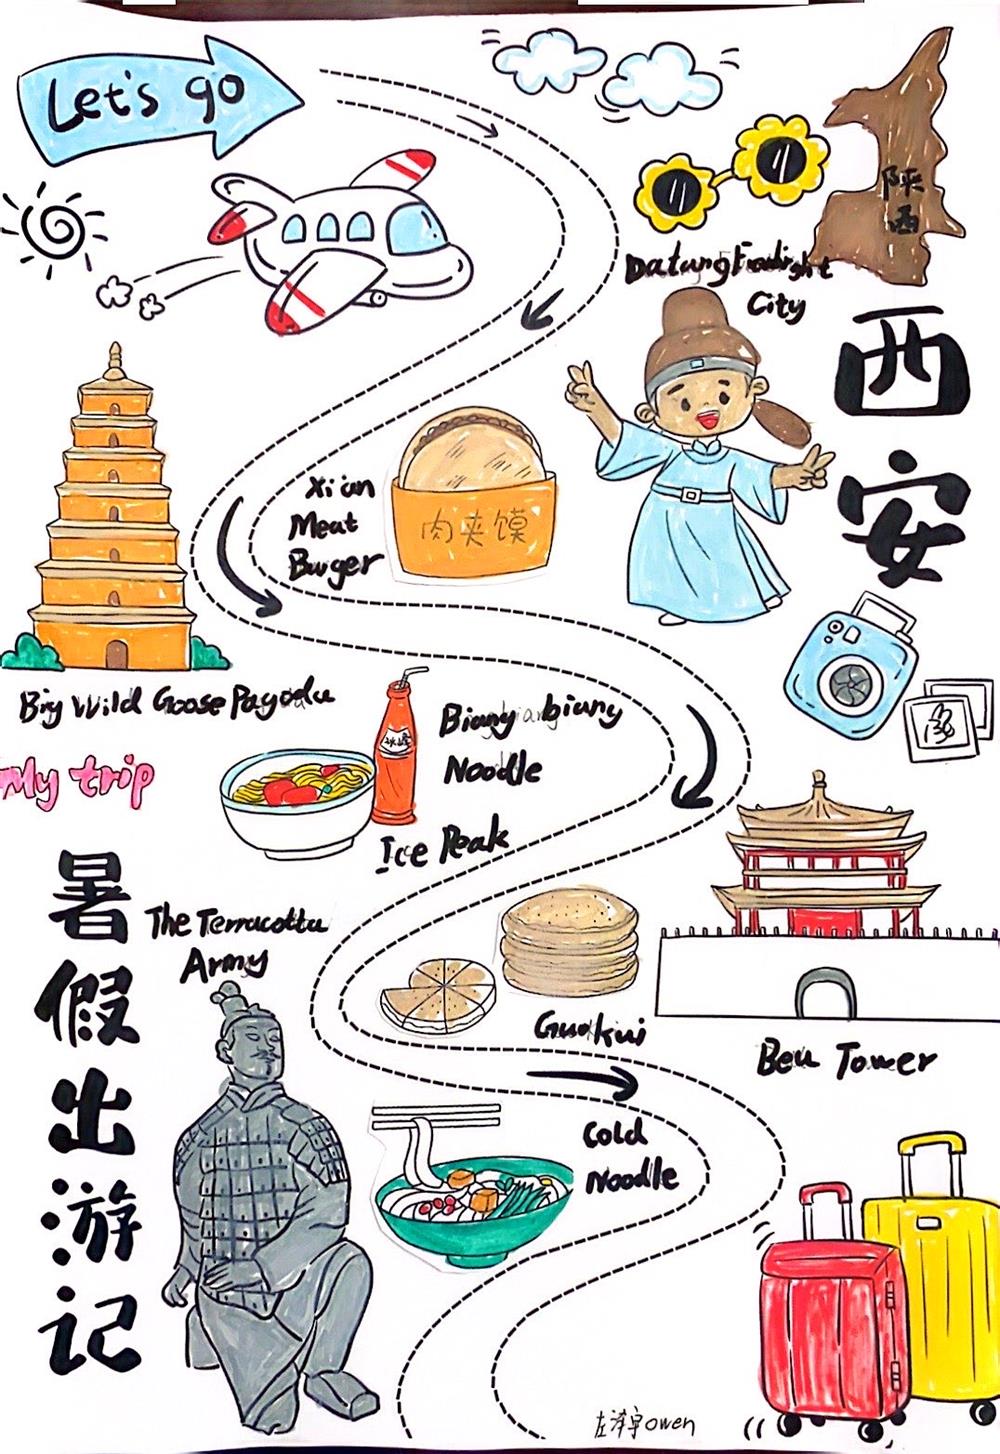 Let's go
陕
西
Datang Everlight
City
西
安
Xi'an
Meat
Burger
肉夹馍
Big Wild Goose Pagoda
My trip
Biang biang
Noodle
冰峰
Ice Peak
暑
假
出
游
记
The Terracotta
Army
Guokui
Bell Tower
Cold
Noodle
owen